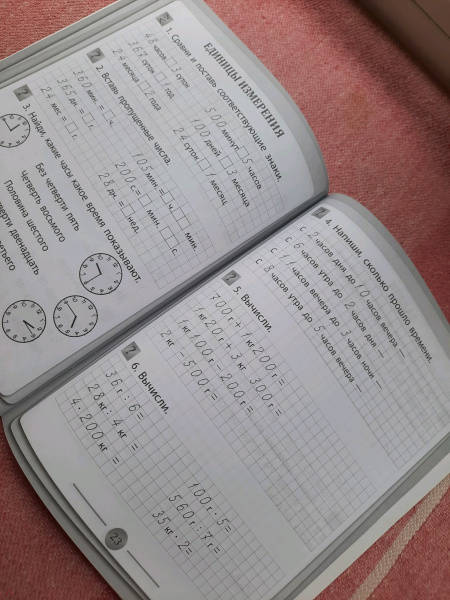 ЕДИНИЦЫ ИЗМЕРЕНИЯ
1. Сравни и поставь соответствующие знаки.
48 часов □ 3 суток 500 минут □ 5 часов
363 суток □ 1 год 100 дней □ 3 месяца
24 месяца □ 2 года 24 суток □ 1 месяц
2. Вставь пропущенные числа.
360 мин. = □ ч. 105 мин. = □ ч. □ мин.
365 дн. = □ г. 200 с = □ мин. □ с.
24 мес. = □ г. 28 дн. = □ нед.
3. Найди, какие часы какое время показывают.
Без четверти пять
Четверть восьмого
Половина шестого
двенадцать
4. Напиши, сколько прошло времени.
с 2 часов дня до 10 часов вечера –
с 6 часов утра до 2 часов дня –
с 11 часов вечера до 3 часов ночи –
с 8 часов утра до 5 часов вечера –
5. Вычисли.
700 г + 1 кг 200 г =
1 кг 20 г + 3 кг 300 г =
1 кг 100 г - 200 г =
2 кг - 500 г =
6. Вычисли.
36 г : 6 = 100 г · 5 =
28 кг : 4 кг = 560 г : 7 г =
4 · 200 кг = 35 кг · 2 =
23